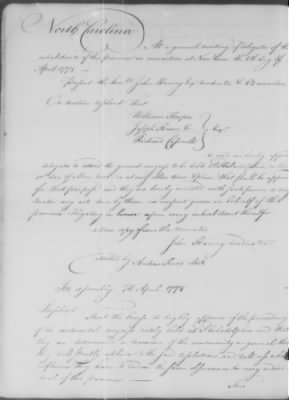 North Carolina
At a general meeting of delegates of the
inhabitants of this province in convention at New Bern the 5th day of
April 1775
Present the Honble John Harvey Esqr moderator & 67 members
On motion resolved that
William Hooper
Joseph Hewes &
Richard Caswell
Esqrs
be and are hereby appointed
delegates to attend the general congress to be held at Philadelphia on the
of May next, or at any other time & place that shall be appointed
for that purpose and they are hereby invested with such powers as may
make any acts done by them or consent given in behalf of this
province obligatory in honor upon every inhabitant thereof
a true copy from the minutes
John Harvey moderator
attested by Andrew Knox clerk
In assembly 7th April 1775
Resolved That the house do highly approve of the proceedings
of the continental congress lately held at Philadelphia and that
they are determined as members of the community in general that
they will strictly adhere to the said resolutions and will use what
influence they have to induce the same observance in every individual
of this province